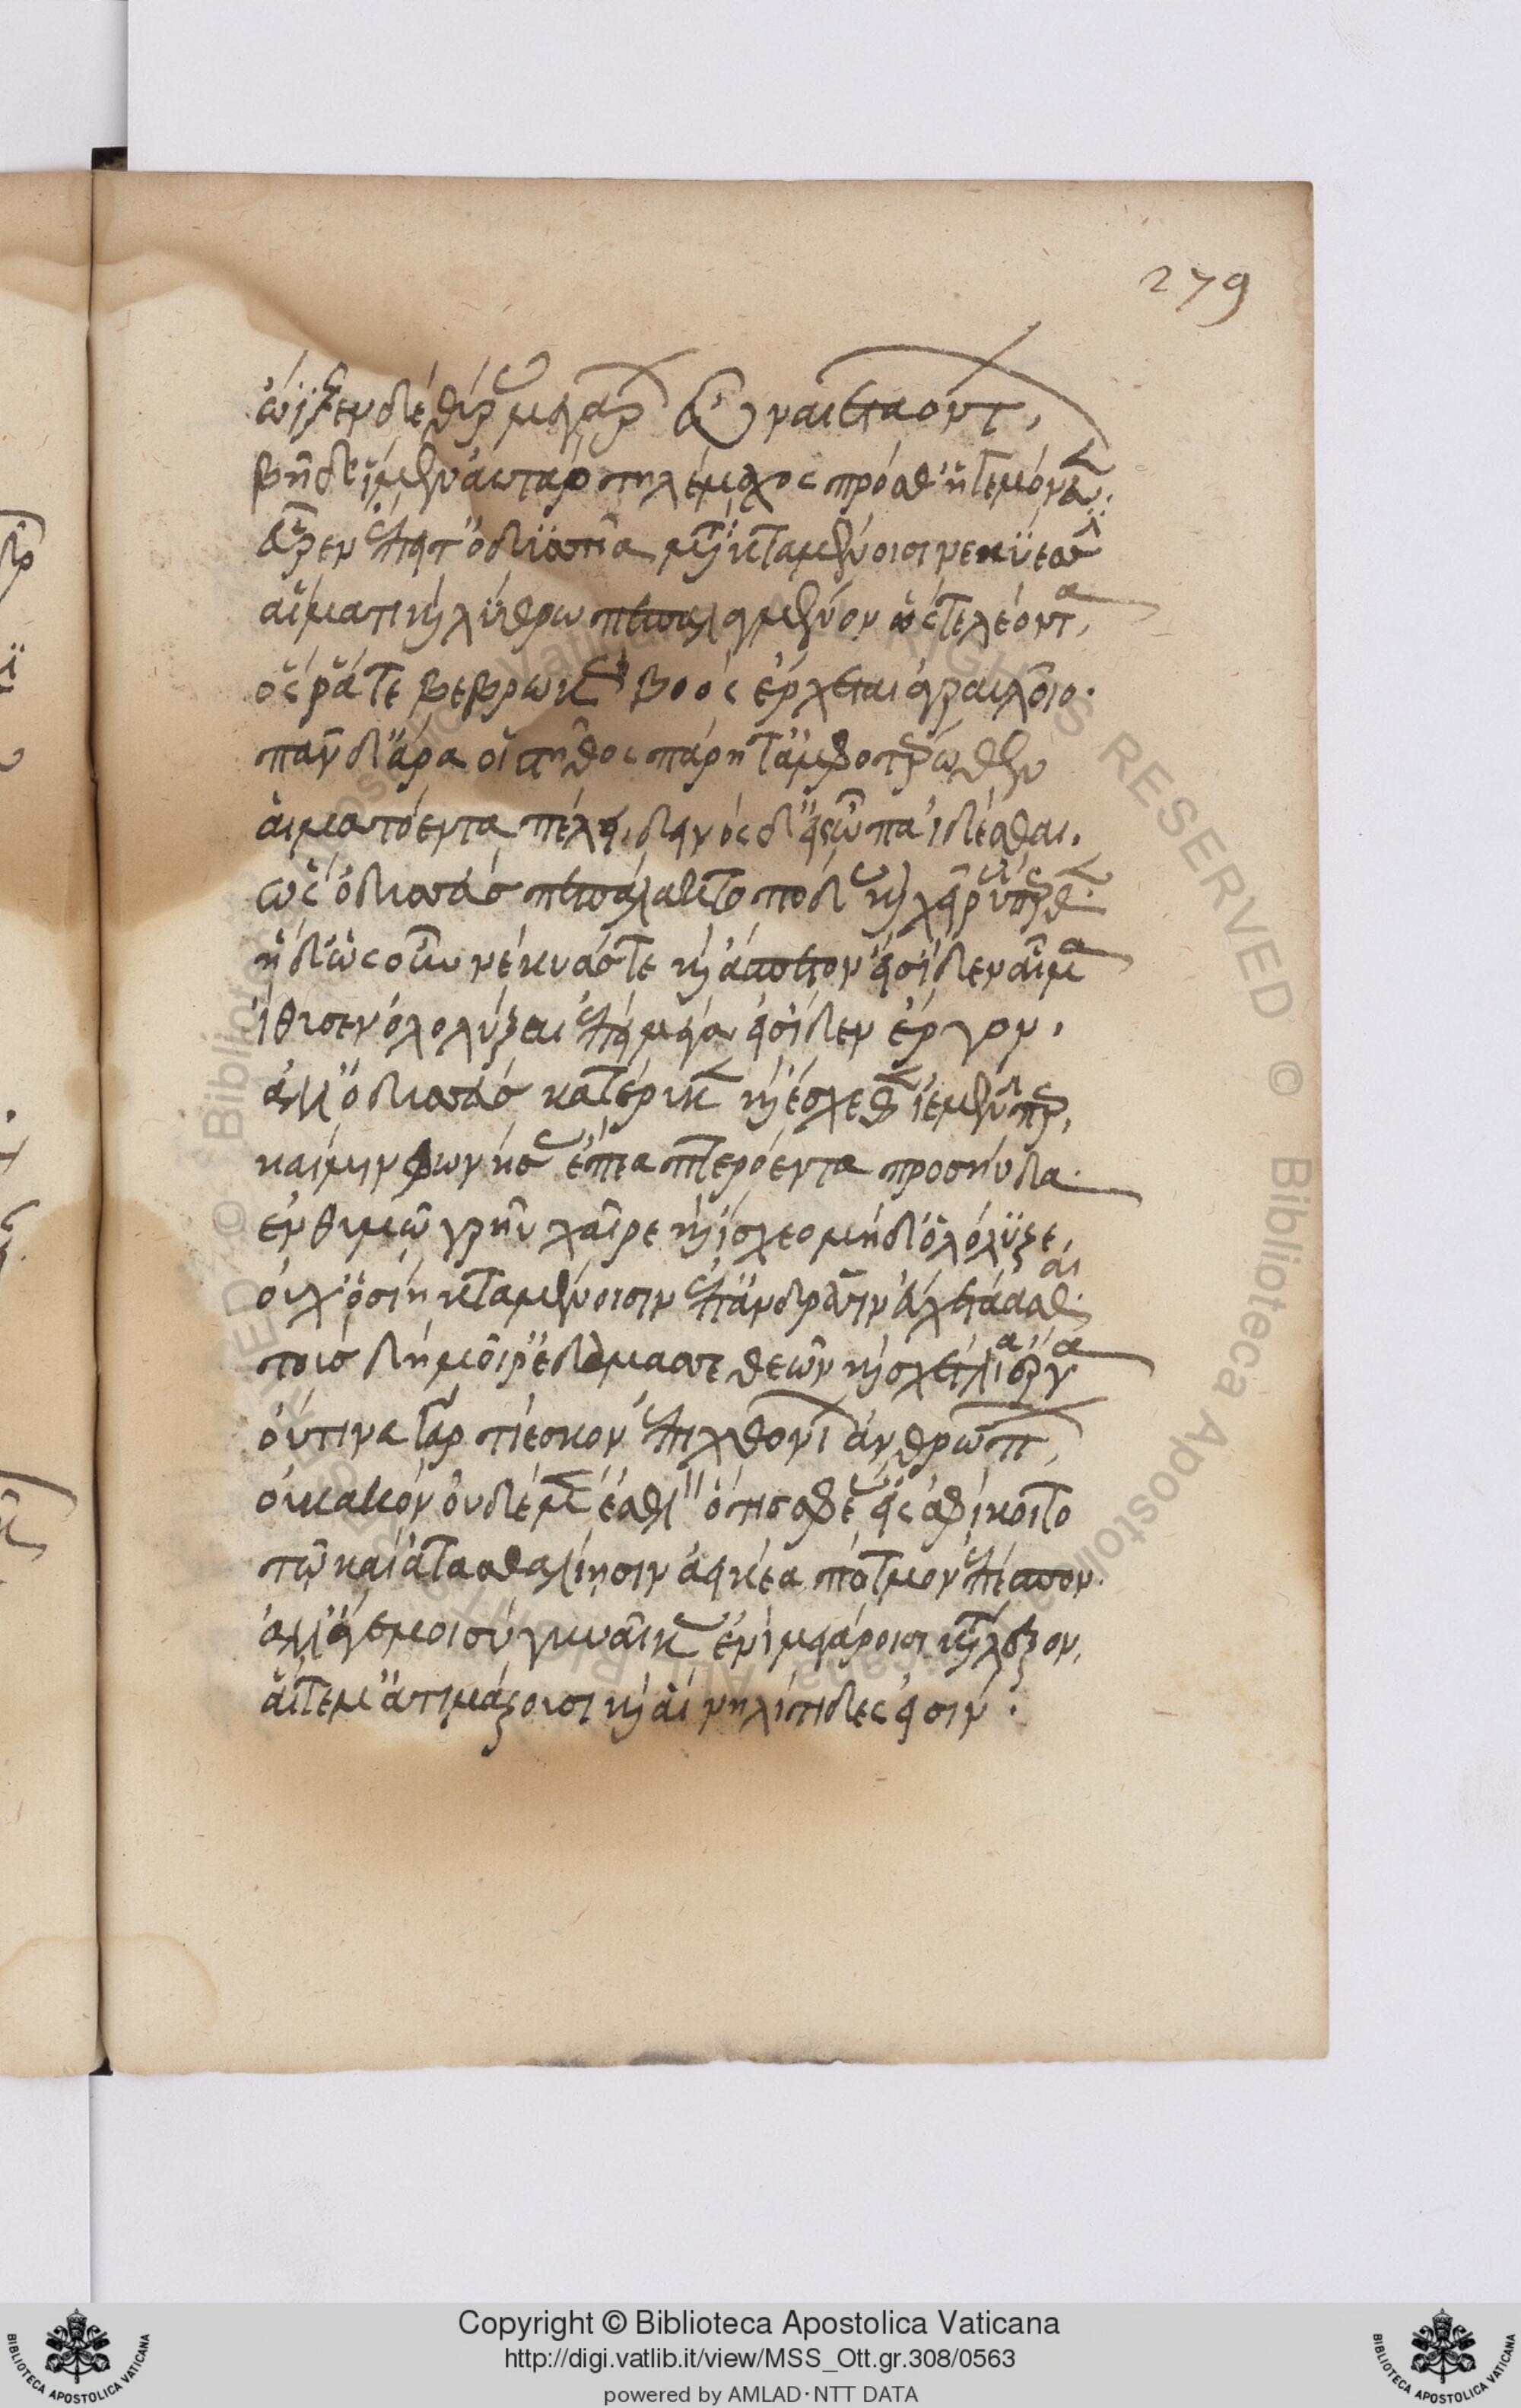 279
ὤϊξεν δὲ θύρας μεγάρων εὐναιεταόντων,
βῆ δ' ἴμεν αὐτὰρ τηλέμαχος πρόσθ' ἡγεμόνευεν.
εὗρεν ἔπειτ' ὀδυσῆα μετὰ κταμένοισι νέκυσσιν
αἵματι καὶ λύθρω πεπαλαγμένον ὥστε λέοντα,
ὅς ῥά τε βεβρωκὼς βοὸς ἔρχεται ἀγραύλοιο.
πᾶν δ' ἄρα οἱ στῆθος παρήϊά τ' ἀμφοτέρωθεν
αἱματόεντα πέλει, δεινὸς δ' εἰς ὦπα ἰδέσθαι.
ὣς ὀδυσσεὺς πεπάλακτο πόδας καὶ χεῖρας ὕπερθεν.
ἡ δ' ὡς οὖν νέκυάς τε καὶ ἄσπετον εἴσιδεν αἷμα
ἴθυσεν ὀλολύξαι ἐπεὶ μέγα εἴσιδεν ἔργον.
ἀλλ' ὀδυσσεὺς κατέρυκε καὶ ἔσχεθεν ἱεμένην περ,
καί μιν φωνήσας ἔπεα πτερόεντα προσηύδα.
ἐν θυμῶ γρηῢ χαῖρε καὶ ἴσχεο μηδ' ὀλόλυζε,
οὐχ' ὁσίη κταμένοισιν ἐπ' ἀνδράσιν εὐχετάασθαι.
τούσδε δὴ μοῖρ' ἐδάμασσε θεῶν καὶ σχέτλια ἔργα
οὔτινα γὰρ τίεσκον ἐπιχθονίων ἀνθρώπων,
οὐ κακὸν οὐδὲ μὲν ἐσθλὸν ὅτις σφέας εἰσαφίκοιτο
τῶ καὶ ἀτασθαλίησιν ἀεικέα πότμον ἐπέσπον.
ἀλλ' ἄγε μοι σὺ γυναῖκας ἐνὶ μεγάροισι κατάλεξον,
αἵ τε μ' ἀτιμάζουσι καὶ αἳ νηλίτιδες εἰσίν.
Copyright © Biblioteca Apostolica Vaticana
http://digi.vatlib.it/view/MSS_Ott.gr.308/0563
powered by AMLAD·NTT DATA